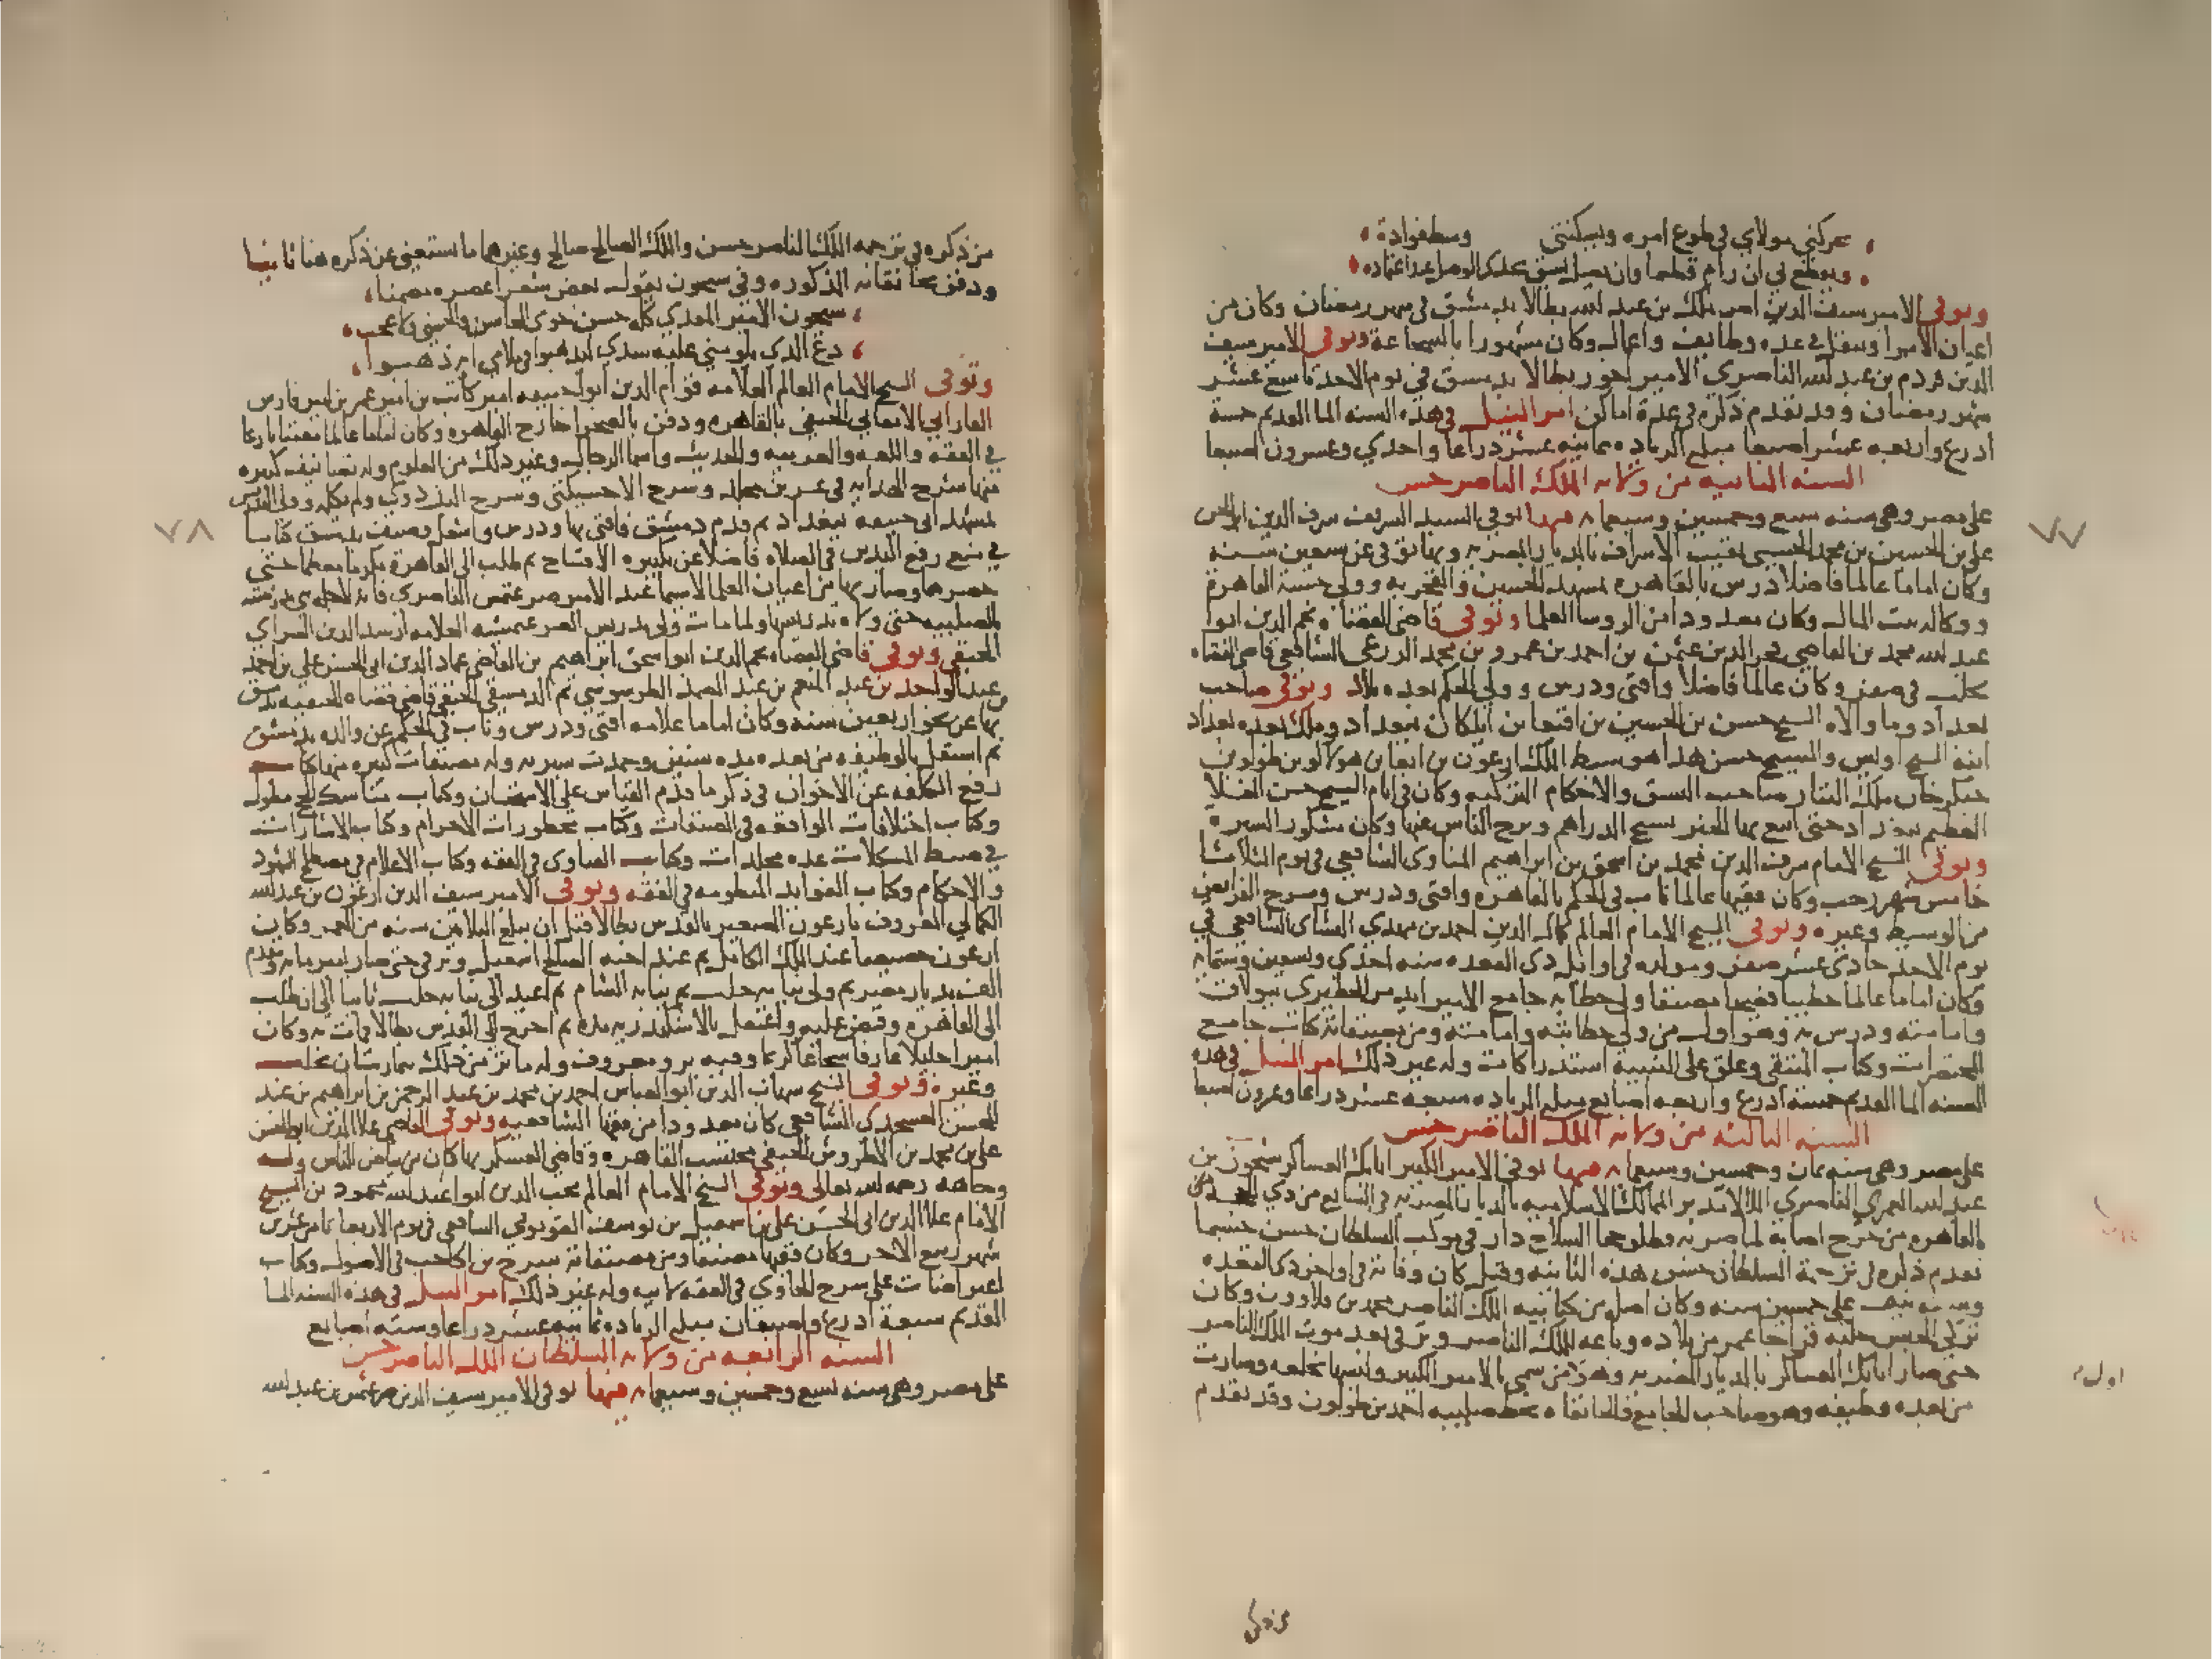 يحركني مولاي في طوع امره ويسكنني وسط فواده
ويقطع بي ان رام قطعا وان يصل يشق بحد كرالوصل عند اعتماده
وتوفي الامير سيف الدين بن عبد الله بطالا بدمشق في شهر رمضان وكان من
اعيان الامرا وتنقل في عده وظايف واعمال وكان مشهورا بالشجاعة وتوفي الامير سيف
الدين قردم بن عبد الله الناصري الامير اخور بطالا بدمشق في يوم الاحد تاسع عشر
شهر رمضان وقد تقدم ذكره في عدة اماكن امر النيل في هذه السنه الما القديم خمسة
ادرع واربعه عشر اصبعا مبلغ الزياده ثمانيه عشر دراعا واحدي وعسرون اصبعا
السنه الثانيه من ولايه الملك الناصر حسن
علي مصر وهي سنه سبع وخمسين وسبعمايه فيها توفي السيد الشريف شرف الدين ابو الحسن
علي بن الحسين بن محمد الحسيني نقيب الاشراف بالديار المصريه وبها توفي عن سبعين سنه
وكان اماما عالما فاضلا درس بالقاهره بمشهد الحسين والفخريه وولي حسبة القاهرة
ووكاله بيت المال وكان معدودا من الروسا العلما وتوفي قاضي القضاه نجم الدين ابوا
عبد الله محمد بن القاضي فخر الدين عثمن بن احمد بن عمرو بن محمد الزرعي الشافعي قاضي القضاه
بحلب في صفر وكان عالما فاضلا وافتي ودرس وولي الحكم بعده بلاد وتوفي صاحب
بغداد وما والاه الشيخ حسن بن الحسين بن اقبغا بن ايلكان ببغداد وملك بعده بغداد
ابنه الشيخ اويس والشيخ حسن هذا هو سبط الملك ارغون بن ابغا بن هولاكو بن طولو بن
جنكزخان ملك التتار صاحب اليسق والاحكام التركيه وكان في ايام الشيخ حسن الغلا
العظيم ببغداد حتي ابيع بها الخبز بسنج الدراهم ونزح الناس عنها وكان مشكور السيره
وتوفي الشيخ الامام شرف الدين محمد بن اسحق بن ابراهيم المناوي الشافعي في يوم الثلاثا
خامس شهر رجب وكان فقيها عالما ناب في الحكم بالقاهره وافتي ودرس وشرح الفرايض
من الوسيط وغيره وتوفي الشيخ الامام العالم كمال الدين احمد بن مهدي النشاي الشافعي في
يوم الاحد حادي عشر صفر ومولده في اوايل ذي القعده سنه احدي وتسعين وستمايه
وكان اماما عالما خطيبا فقيها مصنفا ولي خطابه جامع الامير ايدمر الخطيري ببولاق
وامامته ودرس به وهو اول من ولي خطابته وامامته ومن مصنفاته كتاب جامع
المختصرات وكتاب المنتقي وعلق علي التنبيه استدراكات وله غير ذلك امر النيل في هذه
السنه الما القديم خمسة ادرع واربعه اصابع مبلغ الزياده سبعه عشر دراعا وعرون اصبعا
السنه الثالثه من ولايه الملك الناصر حسن
علي مصر وهي سنه ثمان وخمسين وسبعمايه فيها توفي الامير الكبير اتابك العساكر شيخون بن
عبد الله العمري الناصري اللالا مدبر الممالك الاسلاميه بالديار المصريه في السابع من ذي القعده
بالقاهره من جرح اصابه لما ضربه قطلوخجا السلاح دار في موكب السلطان حسن حسبما
تقدم ذكره في ترجمة السلطان حسن هذه الثانيه وقيل كان وفاته في اواخر ذي القعده
وسنه نيف علي خمسين سنه وكان اصله من كتابيه الملك الناصر محمد بن قلاوون وكان
تركي الجنس جلبه خواجا عمر من بلاده وباعه للملك الناصر وترقي بعد موت الملك الناصر
حتي صار اتابك العساكر بالديار المصريه وهو من سمي بالامير الكبير ولبسها بخلعه وصارت
من بعده وظيفه وهو صاحب الجامع والخانقاه بخط صليبه احمد بن طولون وقد تقدم
٧٧
من ذكره في ترجمه الملك الناصر حسن والملك الصالح صالح وغيرهما ما استغني عن ذكره هنا ثانيا
ودفن بخانقاته المذكوره وفي شيخون يقول بعض شعرا عصره مضمنا
شيخون الامير المفدي كله حسن حوي المحاسن والحسني ولا عجب
دع الذي يلومني عليه سدي ليذهبوا في ملامي اية ذهبوا
وتوفي الشيخ الامام العالم العلامه قوام الدين ابوا حنيفه امير كاتب بن امير عمر بن امير فارس
الفارابي الاتقاني الحنفي بالقاهره ودفن بالصحرا خارج القاهره وكان اماما عالما مفتنا بارعا
في الفقه واللغه والعربيه والحديث واسما الرجال وغير ذلك من العلوم وله تصانيف كثيره
منها شرح الهدايه في عشرين مجلد وشرح الاخسيكثي وشرح البزدوي ولم يكمله وولي التدريس
بمشهد ابي حنيفه ببغداد ثم قدم دمشق فافتي بها ودرس واشغل وصنف بدمشق كتابا
في منع رفع اليدين في الصلاه فاضلا عن تكبيره الافتتاح ثم طلب الي القاهرة مكرما معظما حتي
حضرها وصار بها من اعيان العلما لاسيما عند الامير صرغتمش الناصري فانه لاجله بني مدرسته
بالصليبه حتي ولاه تدريسها ولما مات ولي تدريس الصرغتمشيه العلامه ارشد الدين السراي
الحنفي وتوفي قاضي القضاه نجم الدين ابواسحق ابراهيم بن القاضي عماد الدين ابي الحسن علي بن احمد
بن عبد الواحد بن عبد المنعم بن عبد الصمد الطرسوسي ثم الدمشقي الحنفي قاضي قضاه الحنفيه بدمشق
بها عن نحو اربعين سنه وكان اماما علامه افتي ودرس وناب في الحكم عن والده بدمشق
ثم استقل بالوظيفه من بعده مده سنين وحمدت سيرته وله مصنفات كثيره منها كتاب
رفع الكلفه عن الاخوان في ذكر ما قدم القياس علي الاستحسان وكتاب مناسك الحج مطوله
وكتاب اختلافات الواقعه في المصنفات وكتاب محظورات الاحرام وكتاب الاشارات
في ضبط المشكلات عده مجلدات وكتاب الفتاوي في الفقه وكتاب الاعلام في مصطلح الشهود
والاحكام وكتاب الفوايد المنظومه في الفقه وتوفي الامير سيف الدين ارغون بن عبد الله
الكاملي المعروف بارغون الصغير بالقدس بطالا قبل ان يبلغ الثلاثين سنه من العمر وكان
ارغون خصيصا عند الملك الكامل ثم عند اخيه الصالح اسمعيل وترقي حتي صار امير مايه ومقدم
الف بديار مصر ثم ولي نيابه حلب ثم نيابه الشام ثم اعيد الي نيابه حلب ثانيا الي ان طلب
الي القاهره وقبض عليه واعتقل بالاسكندريه مده ثم اخرج الي القدس بطالا فمات به وكان
اميرا جليلا عارفا شجاعا كريما وفيه بر ومعروف وله ماثر من ذلك بمارستان بحلب
وغيره وتوفي الشيخ شهاب الدين ابوالعباس احمد بن محمد بن عبد الرحمن بن ابراهيم بن عبد
المحسن العسجدي الشافعي كان معدودا من فقها الشافعيه وتوفي القاضي علا الدين ابوالحسن
علي بن محمد بن الاطروش الحنفي محتسب القاهره وقاضي العسكر بها كان من بياض الناس وله
وجاهه رحمه الله تعالي وتوفي الشيخ الامام العالم محب الدين ابوا عبد الله محمود بن الشيخ
الامام علا الدين ابي الحسن علي بن اسمعيل بن يوسف القونوي الشافعي في يوم الاربعا ثامن عشري
شهر ربيع الاخر وكان فقيها مصنفا ومن مصنفاته شرح بن الحاجب في الاصول وكتاب
اعتراضات علي شرح الحاوي في الفقه لابيه وله غير ذلك امر النيل في هذه السنه الما
القديم سبعة ادرع واصبعان مبلغ الزياده ثمانيه عشر دراعا وسته اصابع
السنه الرابعه من ولايه السلطان الملك الناصر حسن
علي مصر وهي سنه تسع وخمسين وسبعمايه فيها توفي الامير سيف الدين صرغتمش بن عبد الله
٧٨